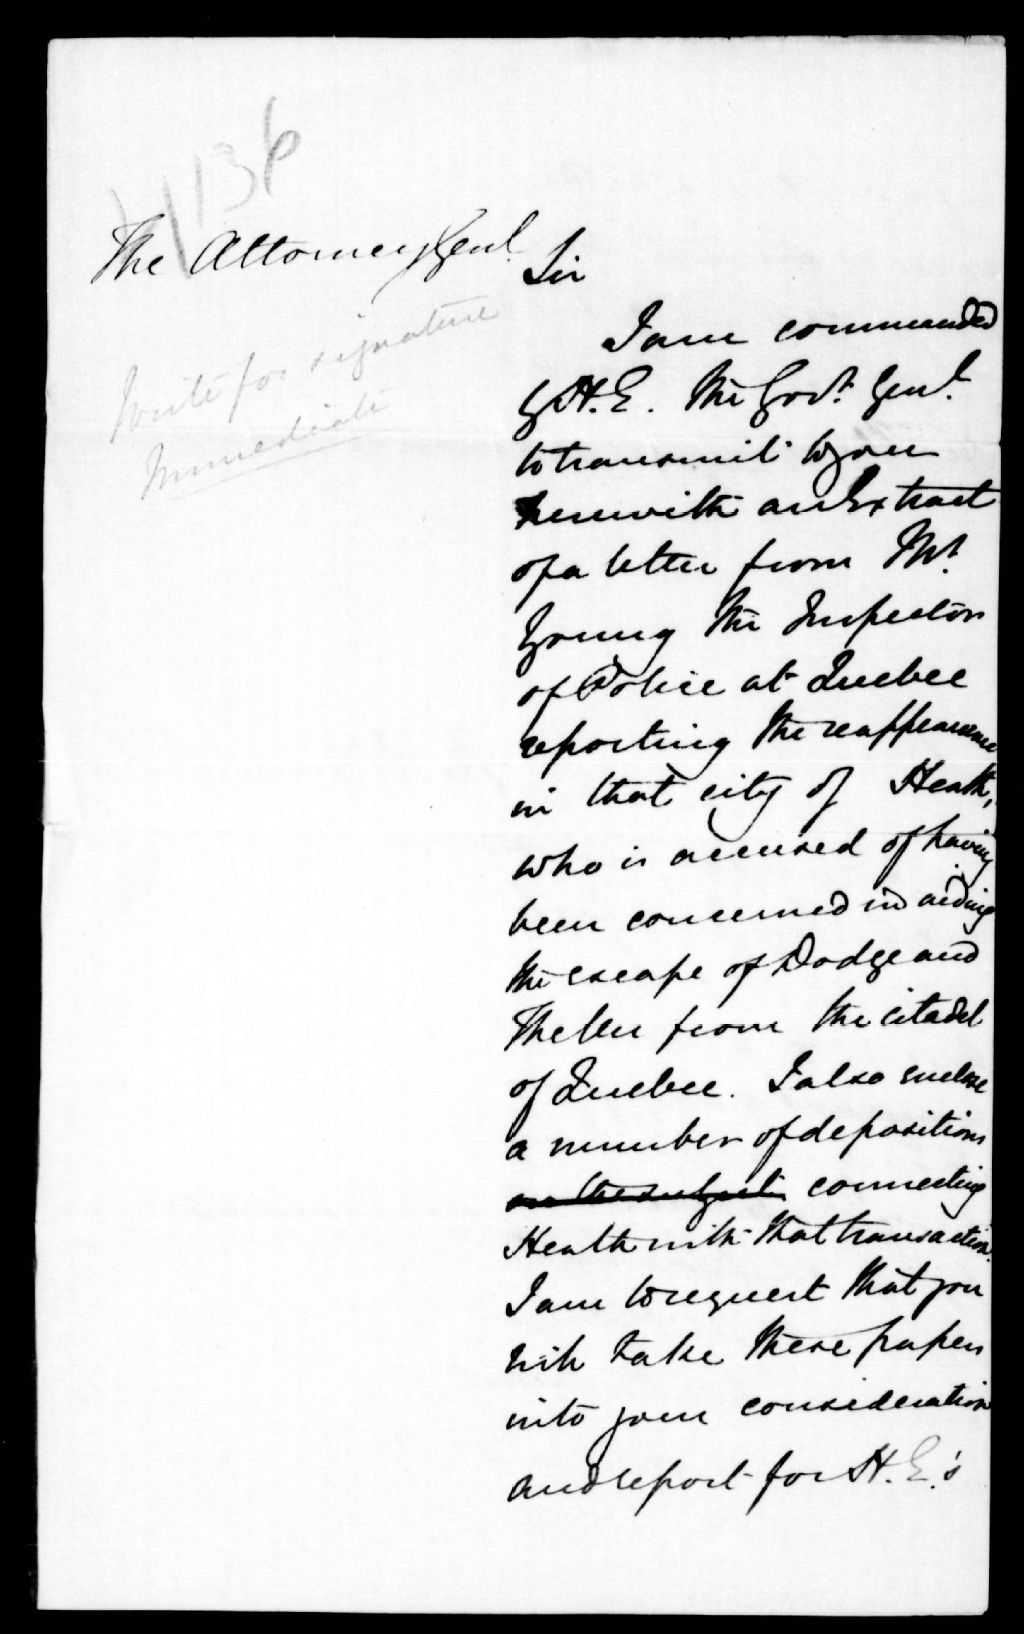 1136
The Attorney Genl.
write for signature
Immediate
Sir
I am commanded
by H. E. the Govr. Genl.
to transmit to you
herewith an Extract
of a letter from Mr.
Young the Inspector
of Police at Quebec
reporting the reappearance
in that city of Heath,
who is accused of having
been concerned in aiding
the escape of Dodge and
Theller from the citadel
of Quebec. I also enclose
a number of depositions
on the subject connecting
Heath with that transaction.
I am to request that you
will take these papers
into your consideration
and report for H. E.'s